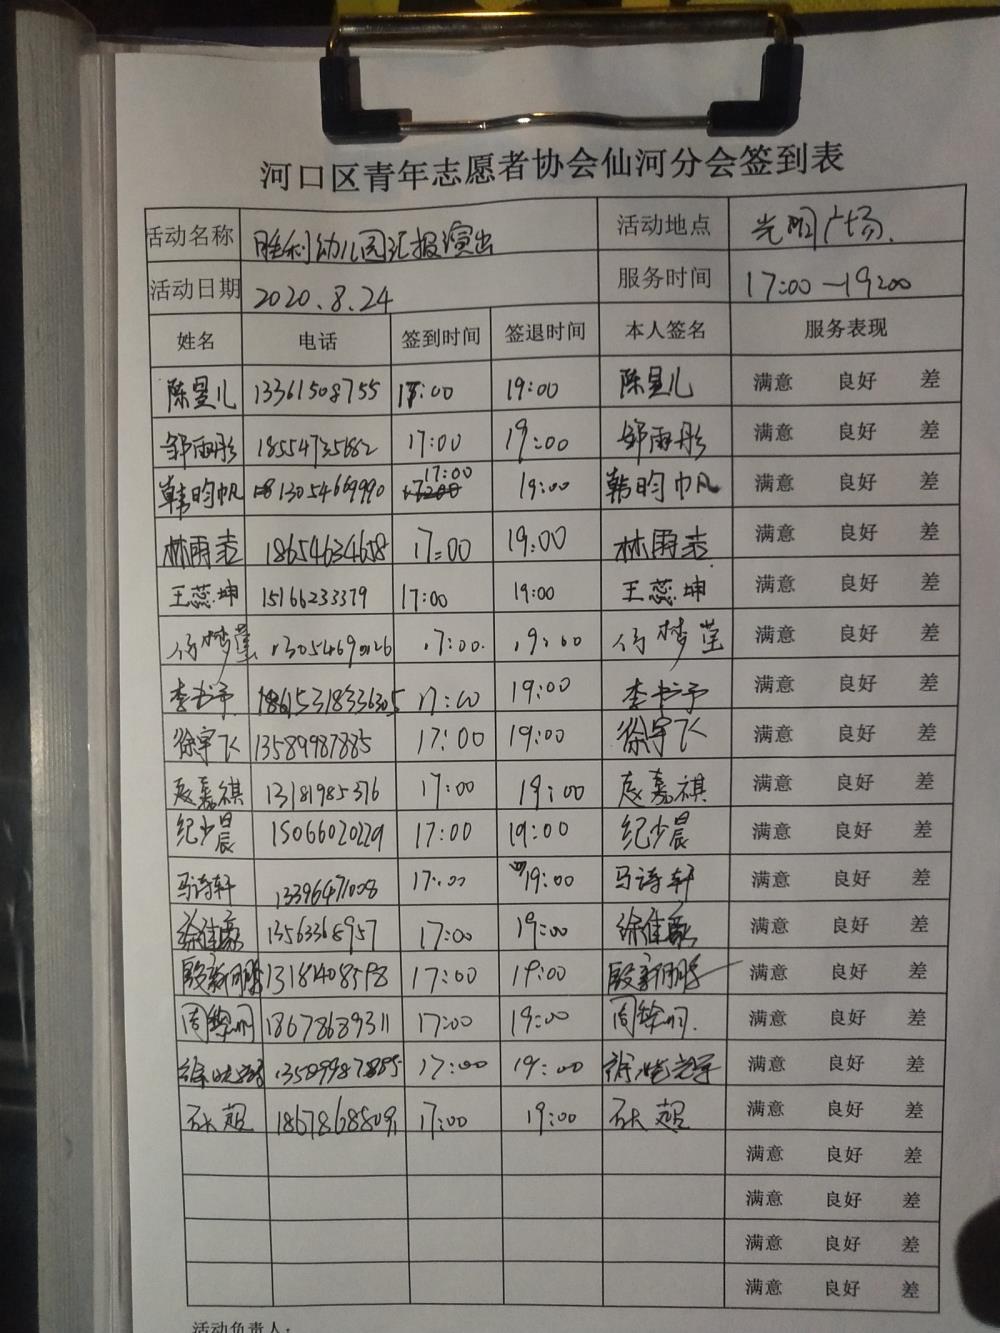 河口区青年志愿者协会仙河分会签到表
活动名称 胜利幼儿园汇报演出 活动地点 光明广场.
活动日期 2020.8.24 服务时间 17:00—19:00
姓名 电话 签到时间 签退时间 本人签名 服务表现
陈昱儿 13361508755 17:00 19:00 陈昱儿 满意 良好 差
邹雨彤 18554735682 17:00 19:00 邹雨彤 满意 良好 差
韩昀帆 13054669990 17:00 19:00 韩昀帆 满意 良好 差
林雨 18654634658 17:00 19:00 林雨 满意 良好 差
王蕊坤 15166233379 17:00 19:00 王蕊坤 满意 良好 差
梦莹 13054690126 17:00 19:00 梦莹 满意 良好 差
李书予 17:00 19:00 李书予 满意 良好 差
徐宇飞 13589987885 17:00 19:00 徐宇飞 满意 良好 差
嘉祺 13181985376 17:00 19:00 嘉祺 满意 良好 差
纪少晨 15066020229 17:00 19:00 纪少晨 满意 良好 差
马诗轩 13396471008 17:00 19:00 马诗轩 满意 良好 差
徐佳 13563368957 17:00 19:00 徐佳 满意 良好 差
殷新鹏 13181408598 17:00 19:00 殷新鹏 满意 良好 差
周黎明 18678689311 17:00 19:00 周黎明 满意 良好 差
徐 13589987885 17:00 19:00 徐 满意 良好 差
石超 18678688091 17:00 19:00 石超 满意 良好 差
满意 良好 差
满意 良好 差
满意 良好 差
满意 良好 差
活动负责人: